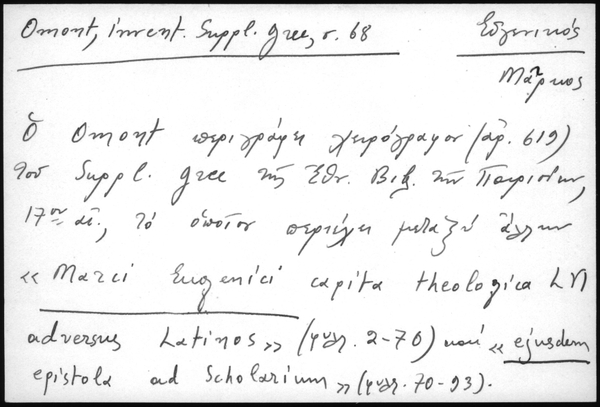 Omont, invent. Suppl. grec, σ. 68
Εὐγενικός
Μᾶρκος
Ὁ Omont περιγράφει χειρόγραφον (ἀρ. 619)
τοῦ Suppl. grec τῆς Ἐθν. Βιβ. τῶν Παρισίων,
17ου αἰ., τό ὁποῖον περιέχει μεταξύ ἄλλων
«Marci Eugenici capita theologica LVI
adversus Latinos» (φύλλ. 2-70) καί «ejusdem
epistola ad Scholarium» (φύλλ. 70-93).